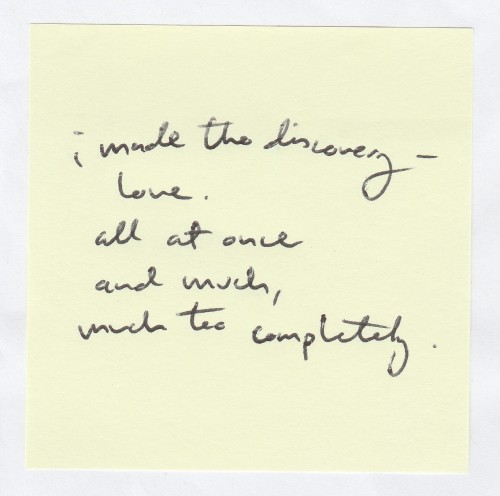 i made the discovery –
love.
all at once
and much,
much too completely.